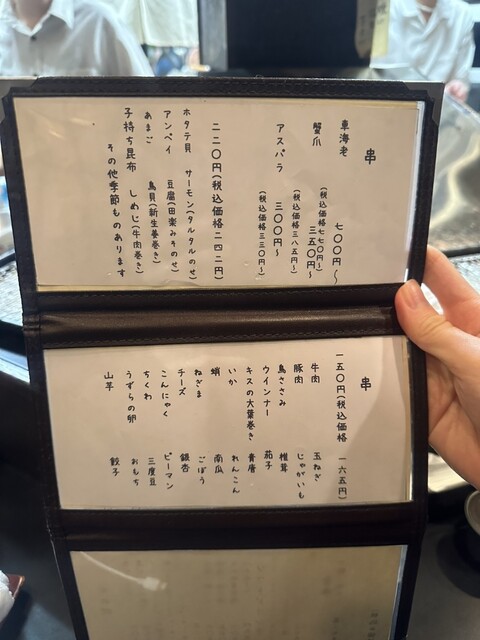 串
車海老 七〇〇円〜
(税込価格七七〇円〜)
蟹爪 三五〇円〜
(税込価格三八五円〜)
アスパラ 三〇〇円〜
(税込価格三三〇円〜)
二二〇円(税込価格二四二円)
ホタテ貝 サーモン(タルタルのせ)
アンペイ 豆腐(田楽みそのせ)
あまご 鳥貝(新生姜巻き)
子持ち昆布 しめじ(牛肉巻き)
その他季節ものあります
串
一五〇円(税込価格 一六五円)
牛肉 玉ねぎ
豚肉 じゃがいも
鳥ささみ 椎茸
ウインナー 茄子
キスの大葉巻き 青唐
いか れんこん
蛸 南瓜
ねぎま ごぼう
チーズ 銀杏
こんにゃく ピーマン
ちくわ 三度豆
うずらの卵 おもち
山芋 餃子